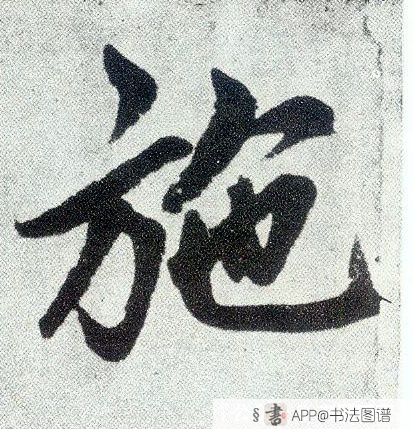 施
§書 APP@书法图谱